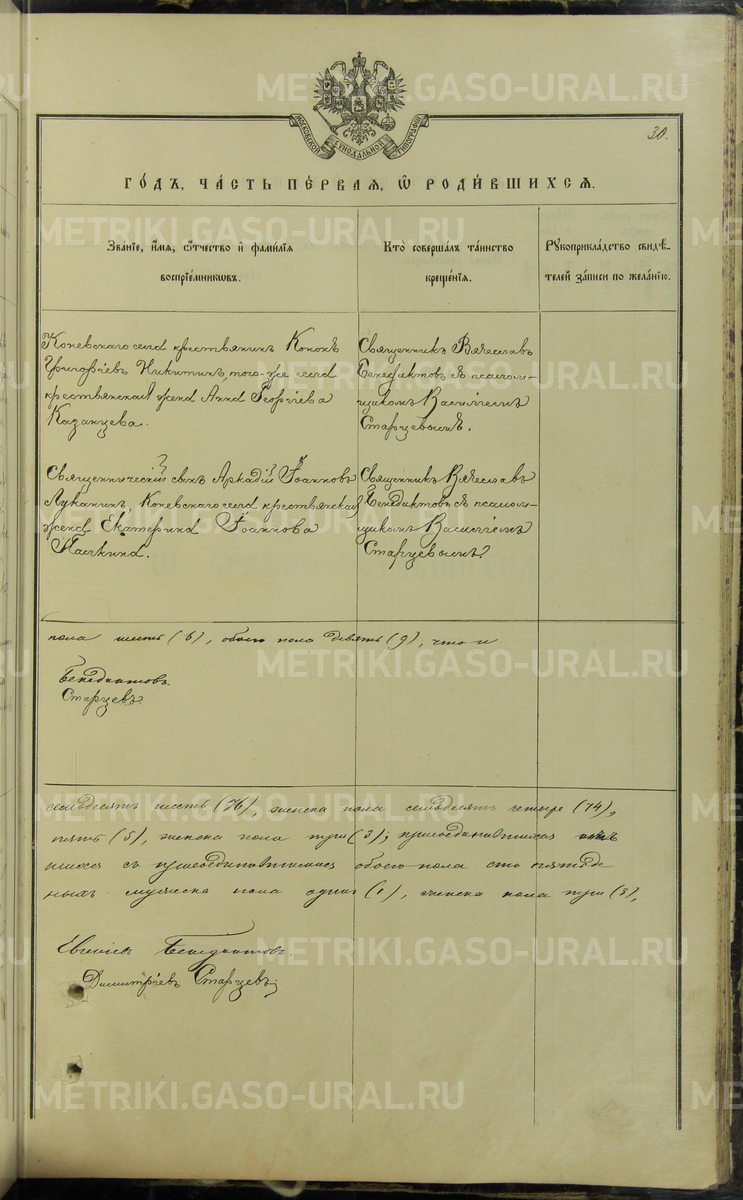 METRIKI.GASO-URAL.RU
МОСКОВСКОЙ СѴНОДАЛЬНОЙ ТИПОГРАФІИ
30.
ГО́ДЪ, ЧА́СТЬ ПЕ́РВАЯ, Ѡ РОДИ́ВШИХСЯ.
Зва́нїе, и҆́мя, ѻ҆́тчество и҆ фами́лїя
воспрїе́мникѡвъ.
Кто̀ соверша́лъ та́инство
креще́нїя.
Рꙋкоприкла́дство свидѣ́-
телей за́писи по жела́нїю.
Коневскаго села крестьянинъ Кононъ
Григоріевъ Никитинъ, того-же села
крестьянская жена Анна Георгіева
Казанцева.
Священникъ Вячеславъ
Бенедиктовъ съ псалом-
щикомъ Василіемъ
Старцевымъ.
Священническій сынъ Аркадій Іоанновъ
Луканинъ, Коневскаго села крестьянская
жена Екатерина Іоаннова
Священникъ Вячеславъ
Бенедиктовъ съ псалом-
щикомъ Василіемъ
Старцевымъ.
пола шесть (6), обоего пола девять (9), что и
Бенедиктовъ.
Старцевъ.
семьдесятъ шесть (76), женска пола семьдесятъ четыре (74),
пять (5), женска пола три (3); присоединившихся
съ присоединившимися обоего пола сто
мужеска пола одинъ (1), женска пола три (3),
Бенедиктовъ.
Димитріевъ Старцевъ